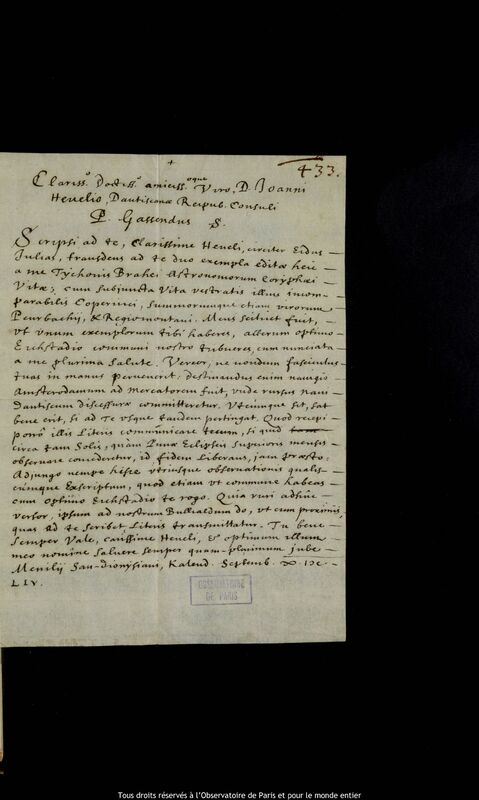 433.
Clariss.º Doctiss.º amiciss.ºque Viro, D. Joanni
Hevelio, Dantiscanæ Reipub. Consuli
P. Gassendus S.
Scripsi ad te, Clarissime Heveli, circiter Eidus
Julias, transdens ad te duo exempla editæ heic
a me Tychonis Brahei Astronomorum Coryphæi
Vitæ; cum subjuncta Vita vestratis illius incom-
parabilis Copernici, summorumque etiam virorum
Peurbachij, & Regiomontani. Mens scilicet fuit,
ut unum exemplorum tibi haberes, alterum optimo
Eichstadio communi nostro tribueres, cum nunciata
a me plurima salute. Vereor, ne nondum fasciculus
tuas in manus pervenerit; destinandus enim navigio
Amsterodamum ad mercatorem fuit, unde rursus navi
Dantiscum discessuræ committeretur. Utcunque sit, sat
bene erit, si ad te usque tandem pertingat. Quod recepi
porrò illis Literis communicare tecum, si quid
circa tam Solis, quàm Lunæ Eclipsin superioris mensis
observare concederetur, id fidem liberans, jam præsto:
Adjungo nempe hisce utriusque observationis qualis-
cumque Exscriptum, quod etiam ut commune habeas
cum optimo Eichstadio te rogo. Quia ruri adhuc
versor, ipsum ad nostrum Bullialdum do, ut cum proximis,
quas ad te scribet Literis transmittatur. Tu bene
semper Vale, carissime Heveli, & optimum illum
meo nomine salvere semper quam-plurimum jube
Menilij San-dionysiani, Kalend. Septemb. MDC
LIV.
OBSERVATOIRE
DE PARIS
Tous droits réservés à l'Observatoire de Paris et pour le monde entier